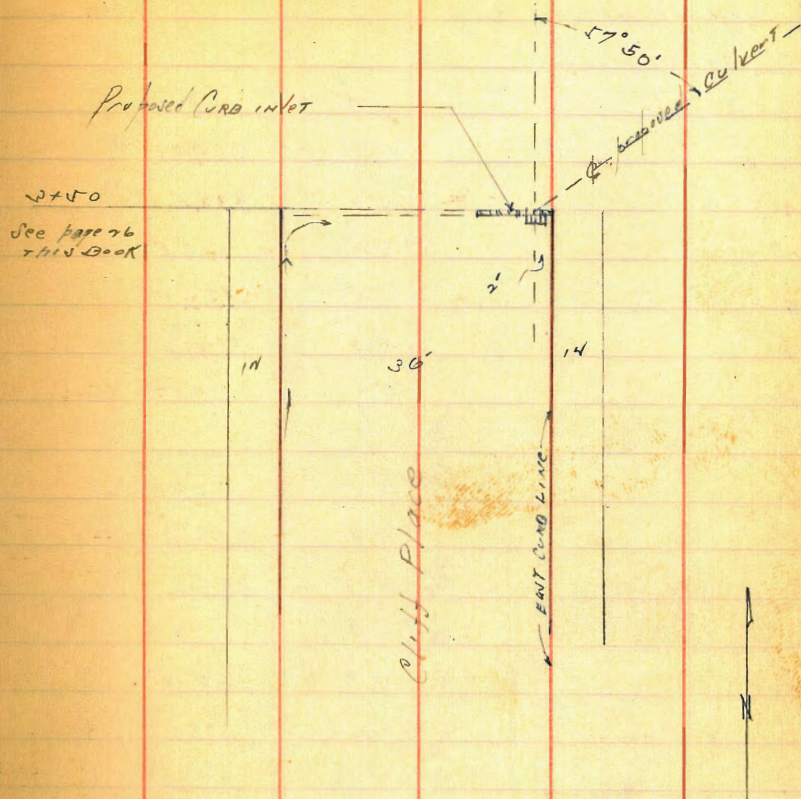 57° 50'
℄ proposed culvert
Proposed CURB INLET
3+50
See page 26
THIS BOOK
2'
14
36'
14
Cliff Place
EAST CURB LINE
N